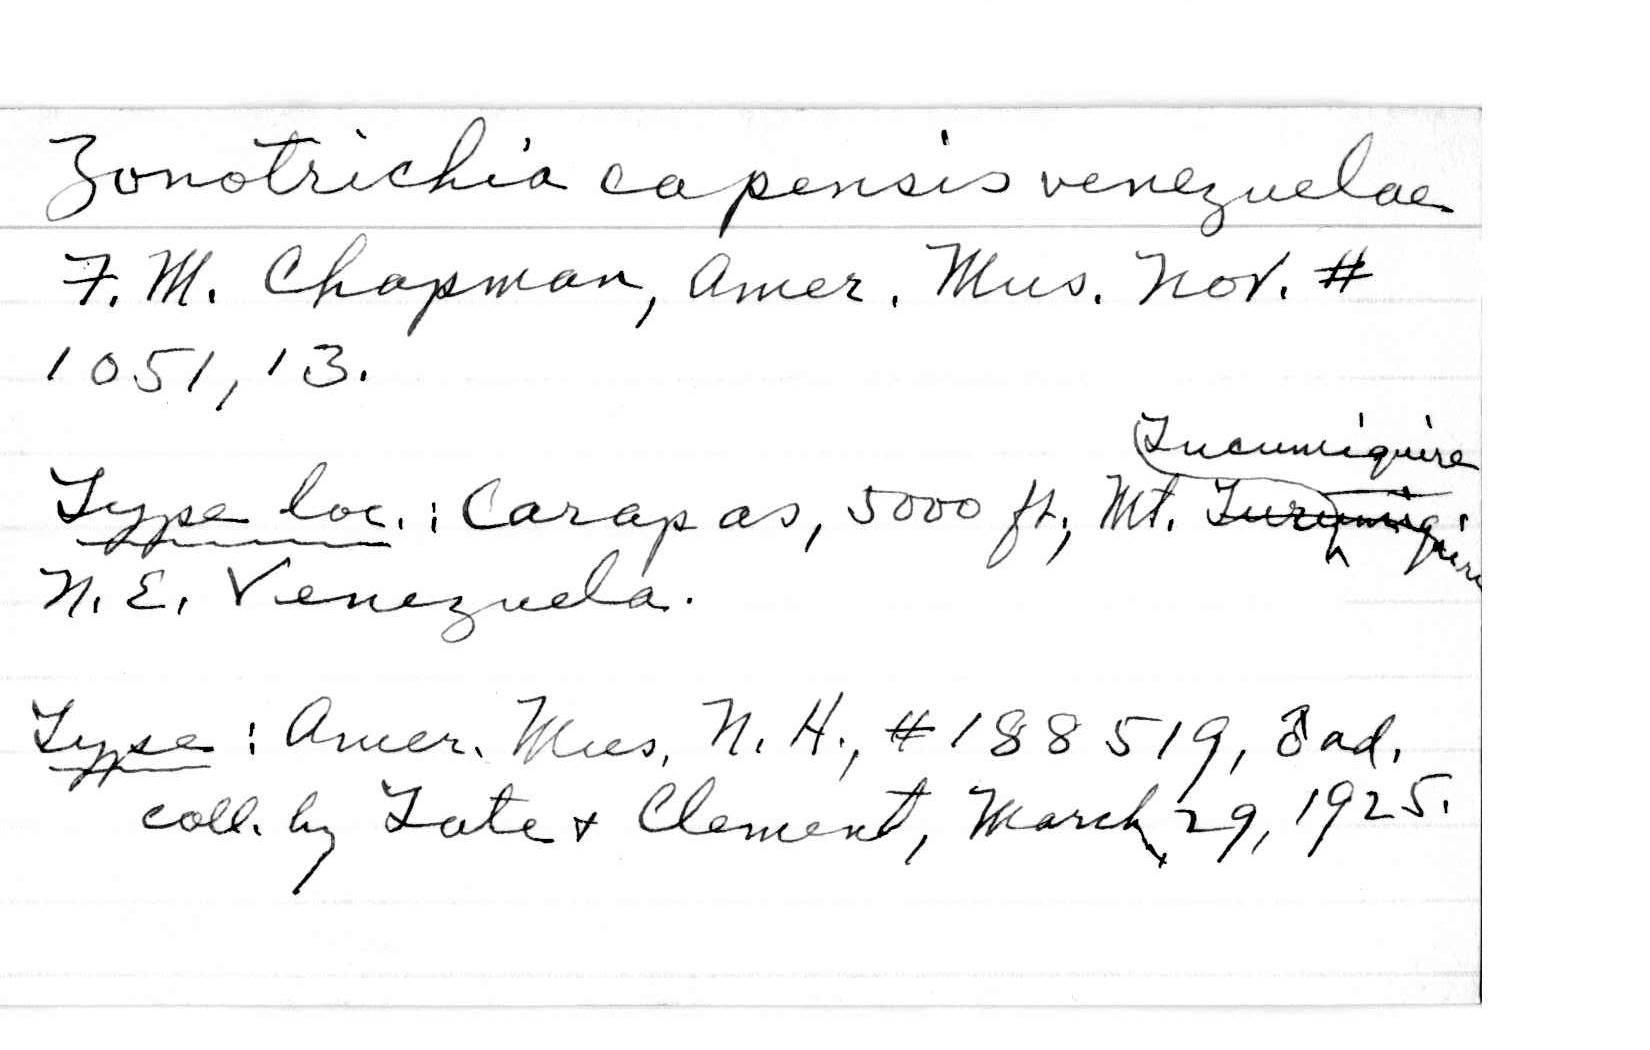 Zonotrichia capensis venezuelae
F. M. Chapman, Amer. Mus. Nov. #
1051, 13.
Tucumiquire
Type loc.: Carapas, 5000 ft, Mt.
N. E. Venezuela.
Type: Amer. Mus. N. H., #188519, ♂ ad.
coll. by Tate + Clement, March 29, 1925.